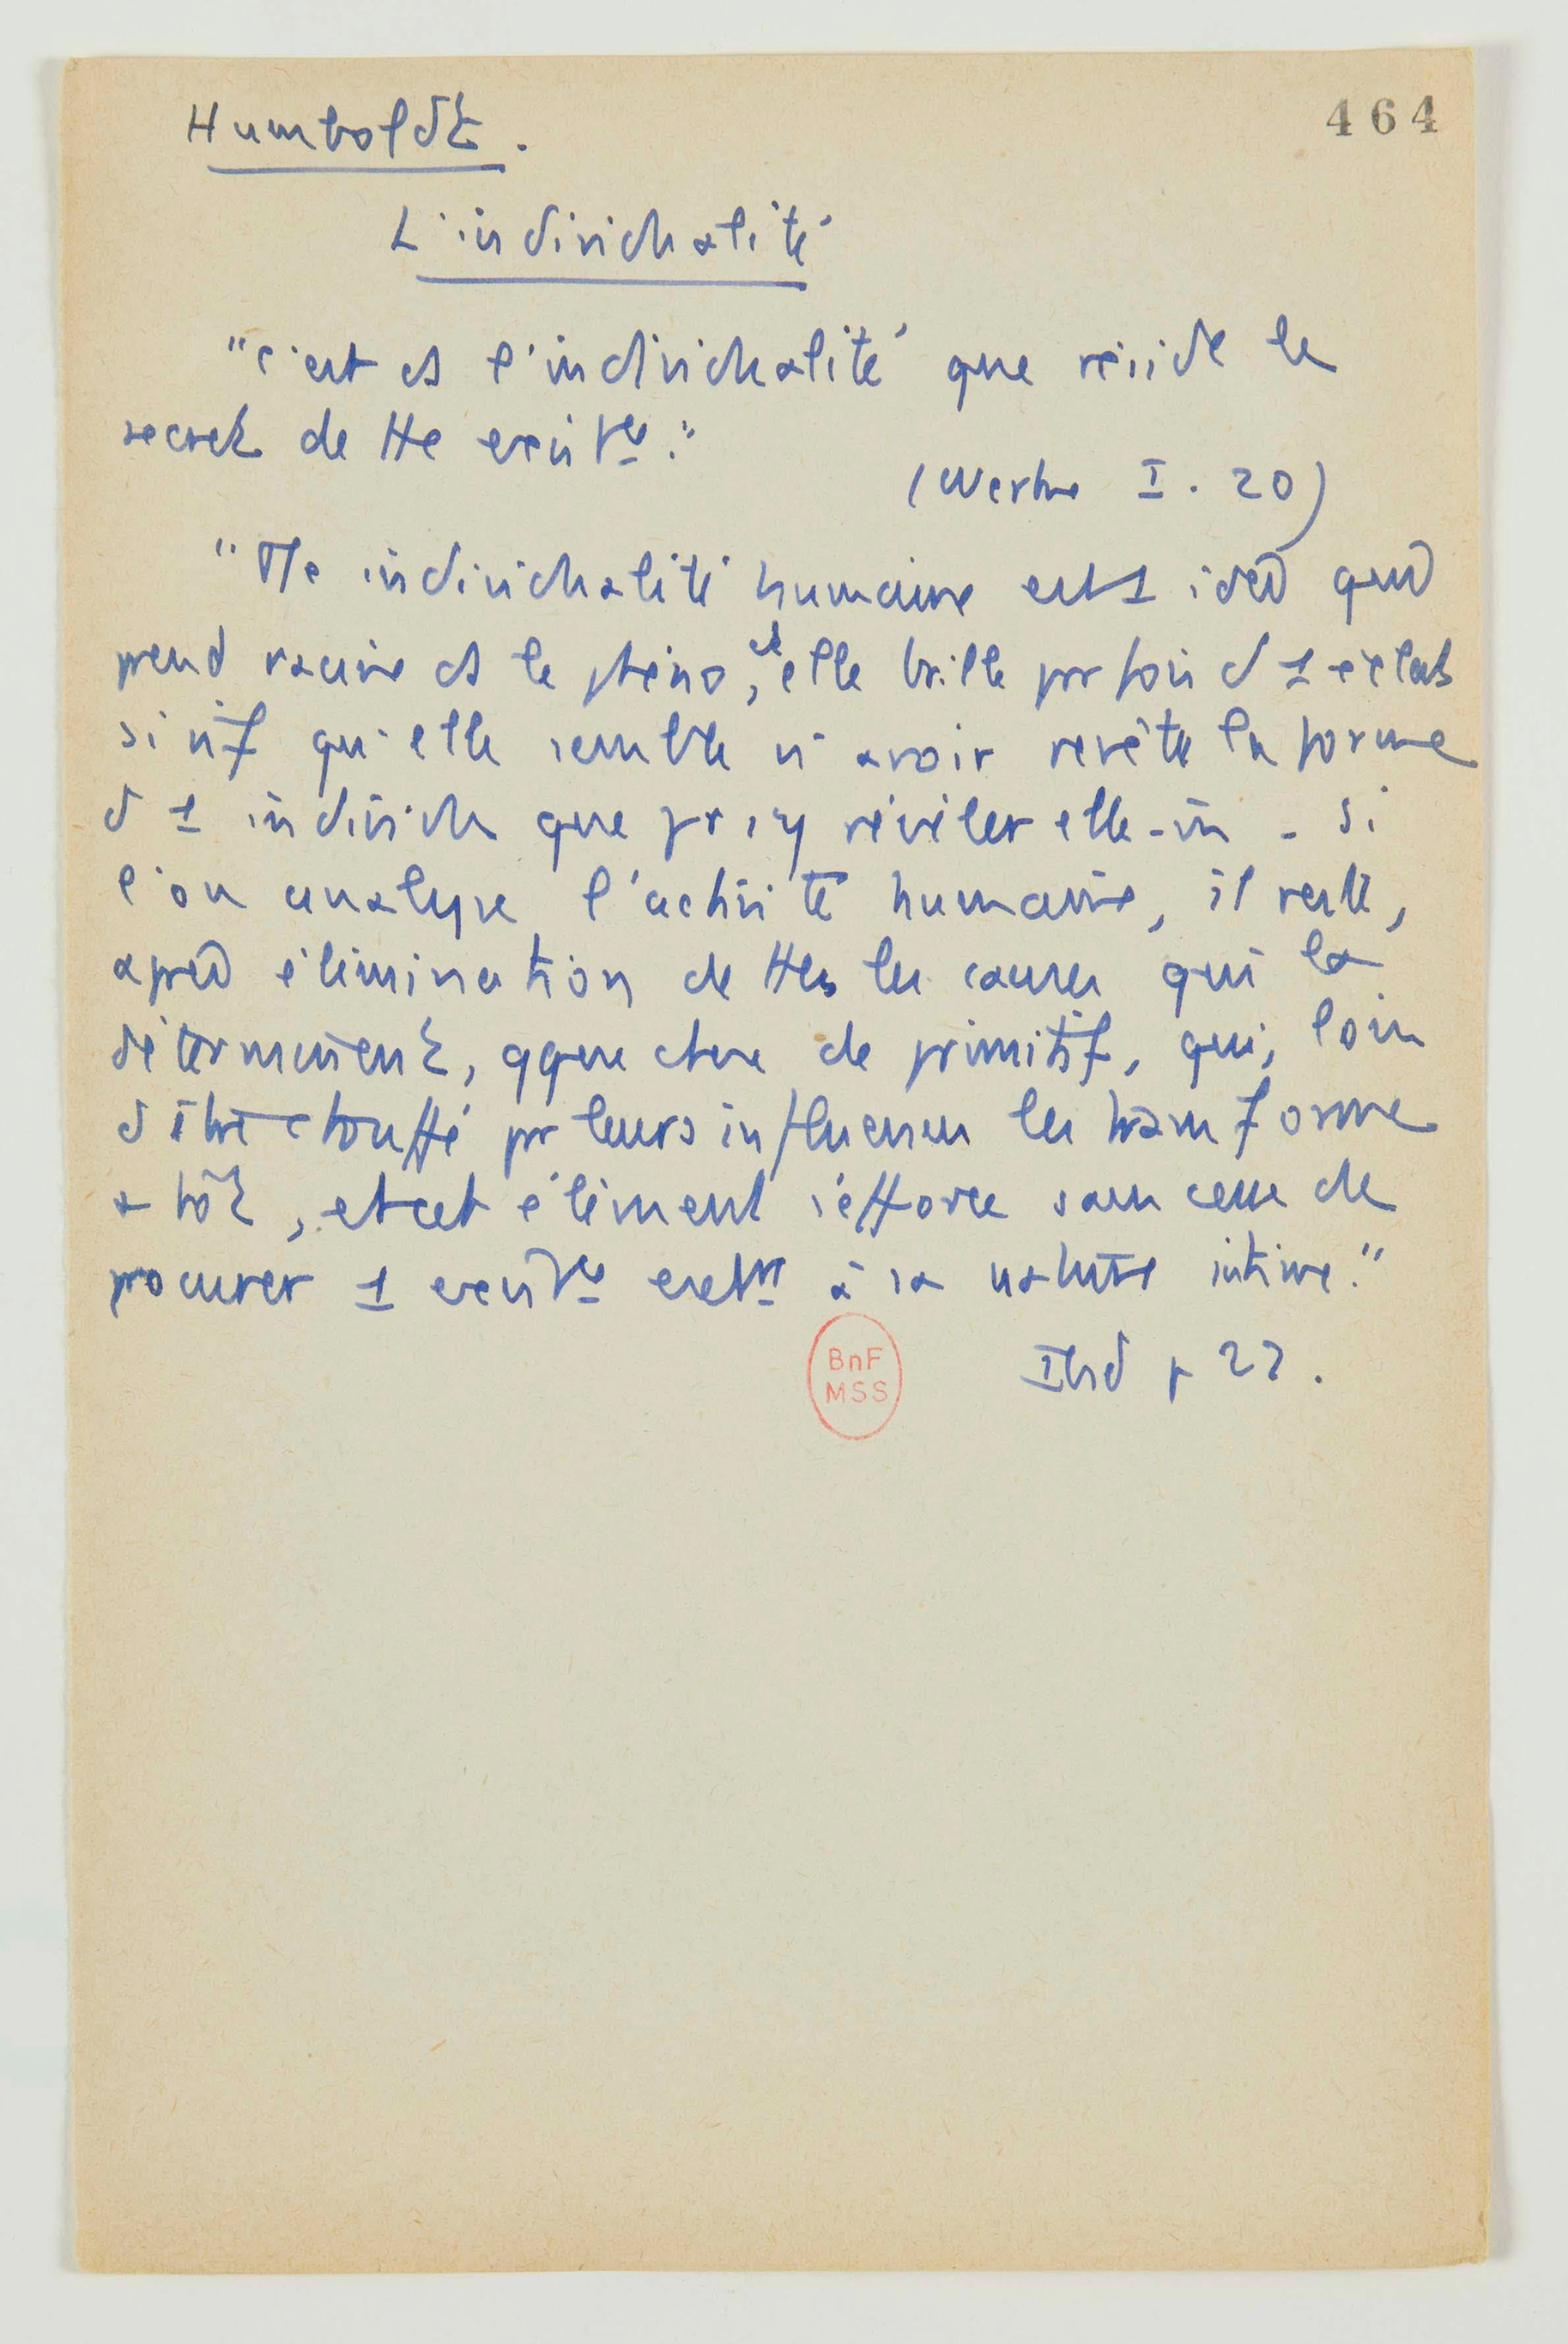 464
Humboldt.
L'individualité
"C'est ds l'individualité que réside le
secret de tte existce."
(Werke I. 20)
"Tte individualité humaine est 1 idée qui
prend racine ds le phéno, et elle brille parfois d'1 éclat
si vif qu'elle semble n'avoir revêtu la forme
d'1 individu que pr s'y révéler elle-m̄ - Si
l'on analyse l'activité humaine, il reste,
après élimination de ttes les causes qui la
déterminent, qque chose de primitif, qui, loin
d'être étouffé par leurs influences les transforme
et cet élément s'efforce sans cesse de
procurer 1 existce extre à sa nature intime."
Ibid p 22.
BnF
MSS